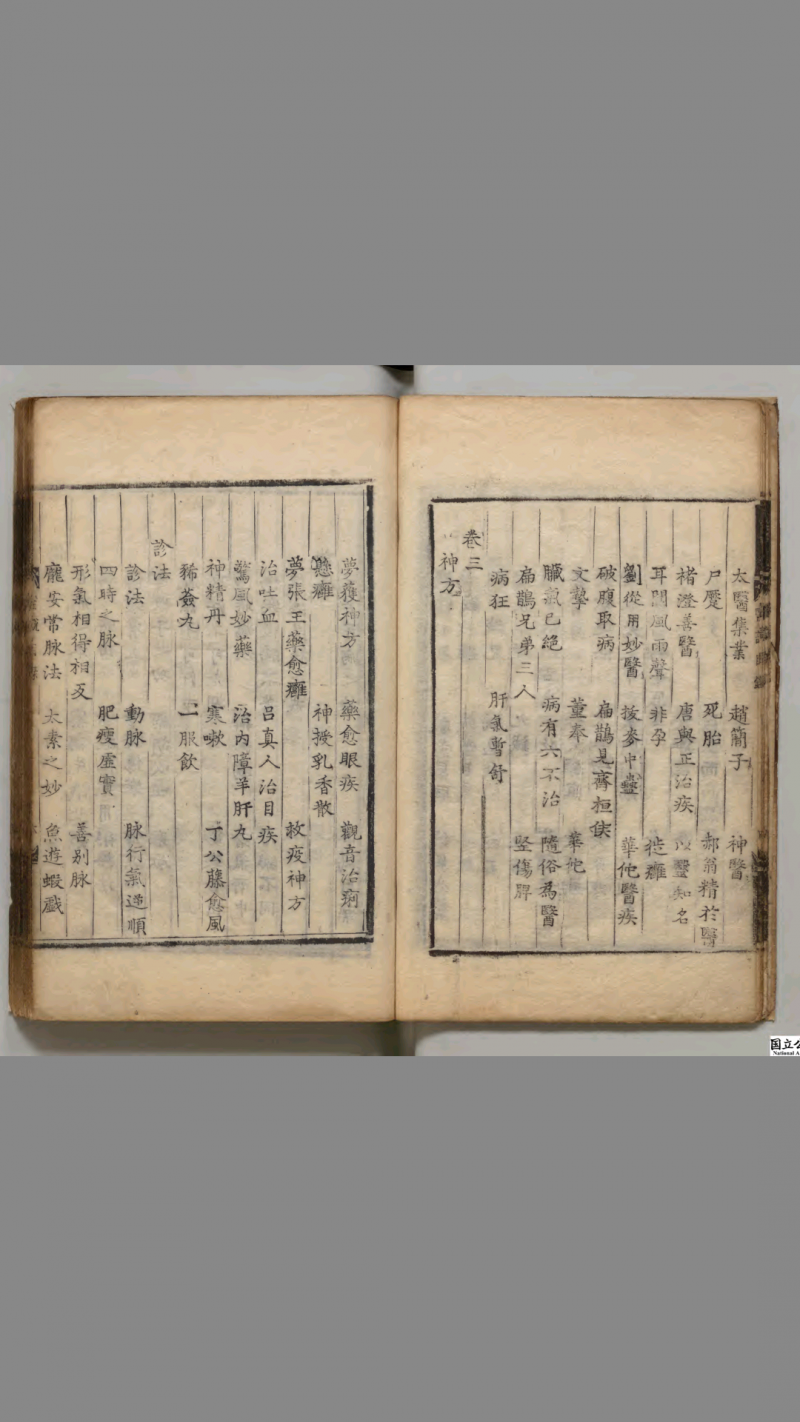 太醫集業 趙簡子 神醫
尸蹷 死胎 郝翁精於醫
褚澄善醫 唐與正治疾 以醫知名
耳聞風雨聲 非孕 徙癰
劉從用妙醫 拔麥中蠱 華佗醫疾
破腹取病 扁鵲見齊桓侯
文摯 董奉 華佗
臟氣已絕 病有六不治 隨俗為醫
扁鵲兄弟三人 竪傷脾
病狂 肝氣暫舒
卷三
神方
夢獲神方 藥愈眼疾 觀音治痢
懸癰 神授乳香散
夢張王藥愈癰 救疫神方
治吐血 呂真人治目疾
驚風妙藥 治內障羊肝丸
神精丹 寒嗽 丁公藤愈風
豨薟丸 一服飲
診法
診法 動脉 脉行氣逆順
四時之脉 肥瘦虛實
形氣相得相反 善別脉
龐安常脉法 太素之妙 魚遊蝦戲
国立公
National A